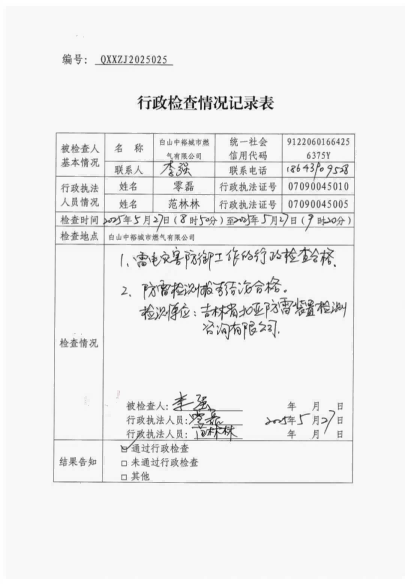 编号： QXXZJ2025025
行政检查情况记录表
被检查人基本情况 名称 白山中裕城市燃气有限公司 统一社会信用代码 91220601664256375Y
联系人 李强 联系电话 18643909528
行政执法人员情况 姓名 零磊 行政执法证号 07090045010
姓名 范林林 行政执法证号 07090045005
检查时间 2025年5月27日(8时50分)至2025年5月27日(9时20分)
检查地点 白山中裕城市燃气有限公司
检查情况
1、雷电灾害防御工作的行政检查合格。
2、防雷检测报告结论合格。
检测单位：吉林省北亚防雷装置检测
咨询有限公司.
被检查人：李强 年 月 日
行政执法人员：零磊 2025年5月27日
行政执法人员：范林林
结果告知
☑ 通过行政检查
□ 未通过行政检查
□ 其他